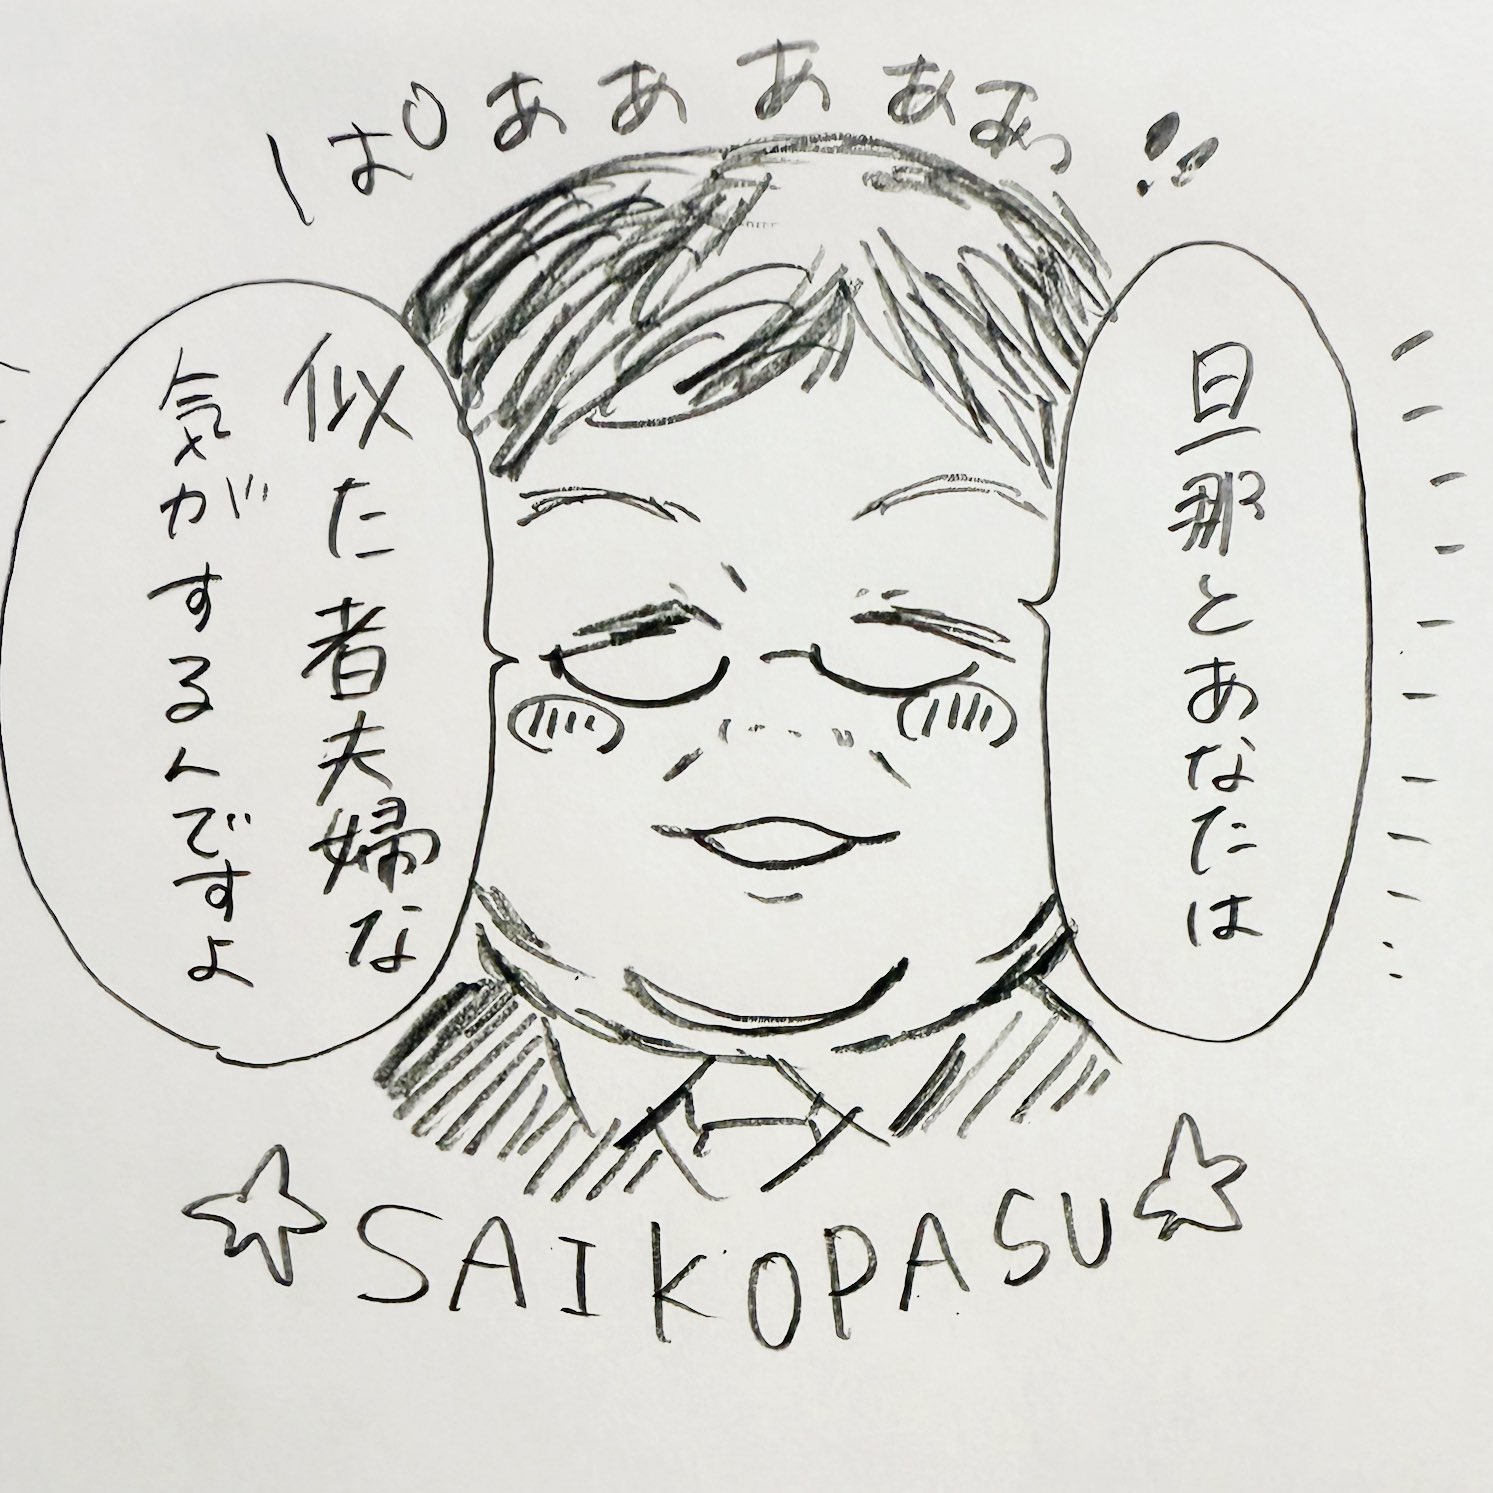 ぱぁあああぁっ!!
旦那とあなたは
似た者夫婦な
気がするんですよ
☆SAIKOPASU☆